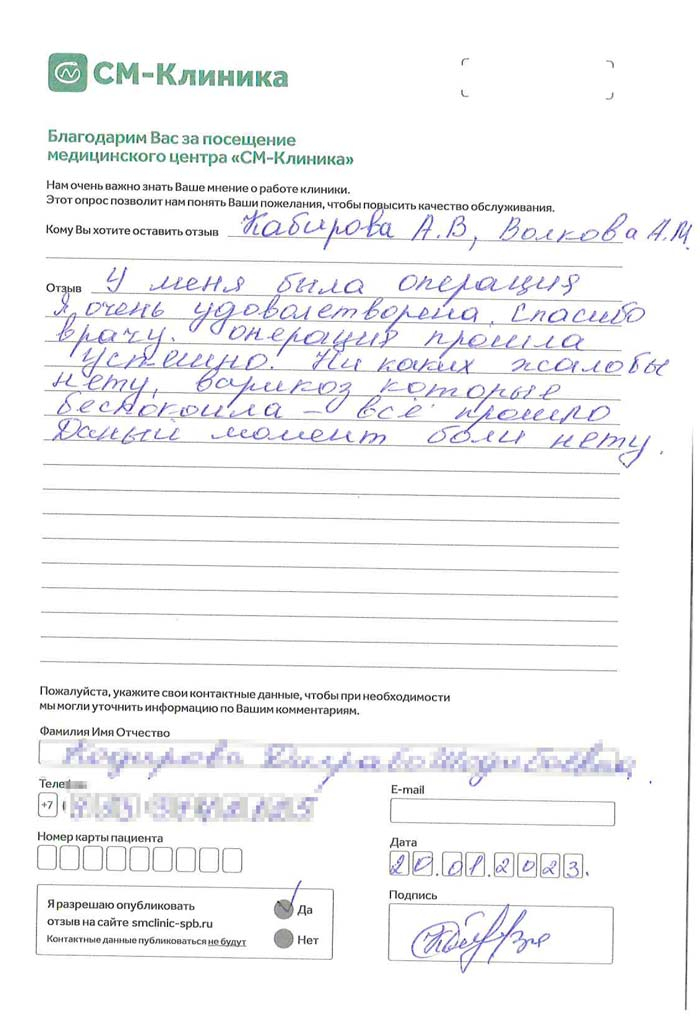 СМ-Клиника
Благодарим Вас за посещение
медицинского центра «СМ-Клиника»
Нам очень важно знать Ваше мнение о работе клиники.
Этот опрос позволит нам понять Ваши пожелания, чтобы повысить качество обслуживания.
Кому Вы хотите оставить отзыв Кабирова А.В, Волкова А.М.
Отзыв У меня была операция
Я очень удовалетворена. Спасибо
врачу. операция прошла
успешно. Ни каких жалобы
нету, варикоз которые
беспокоила – всё прошло
Даный момент боли нету.
Пожалуйста, укажите свои контактные данные, чтобы при необходимости
мы могли уточнить информацию по Вашим комментариям.
Фамилия Имя Отчество
E-mail
+7
Номер карты пациента
Дата
20.01.2023.
Подпись
Я разрешаю опубликовать
отзыв на сайте smclinic-spb.ru
Контактные данные публиковаться не будут
Да
Нет